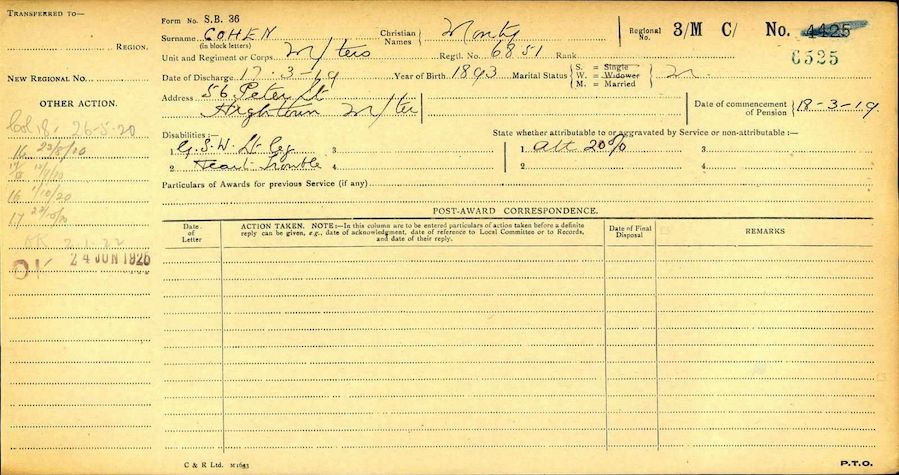 TRANSFERRED TO—
REGION.
NEW REGIONAL NO.
OTHER ACTION.
26-5-20
16 23/8/20
16 1/10/20
17
2.1.22
24 JUN 1926
Form No. S.B. 36
Surname COHEN
(in block letters)
Christian Names Monty
Regional No. 3/M C/ No. 4425
6525
Unit and Regiment or Corps M/ters Regtl. No. 6851 Rank
Date of Discharge 17-3-19 Year of Birth 1893 Marital Status S. = Single
W. = Widower
M. = Married
M.
Address 56 Peter St
Hightown M/ter
Date of commencement of Pension 18-3-19.
Disabilities :— State whether attributable to or aggravated by Service or non-attributable :—
1. G.S.W. Lt Leg 3 1 Att 20% 3
2 Heart Trouble 4 2 4
Particulars of Awards for previous Service (if any)
POST-AWARD CORRESPONDENCE.
Date of Letter
ACTION TAKEN. NOTE:—In this column are to be entered particulars of action taken before a definite
reply can be given, e.g., date of acknowledgment, date of reference to Local Committee or to Records,
and date of their reply.
Date of Final Disposal
REMARKS
C & R Ltd. M1643
P.T.O.